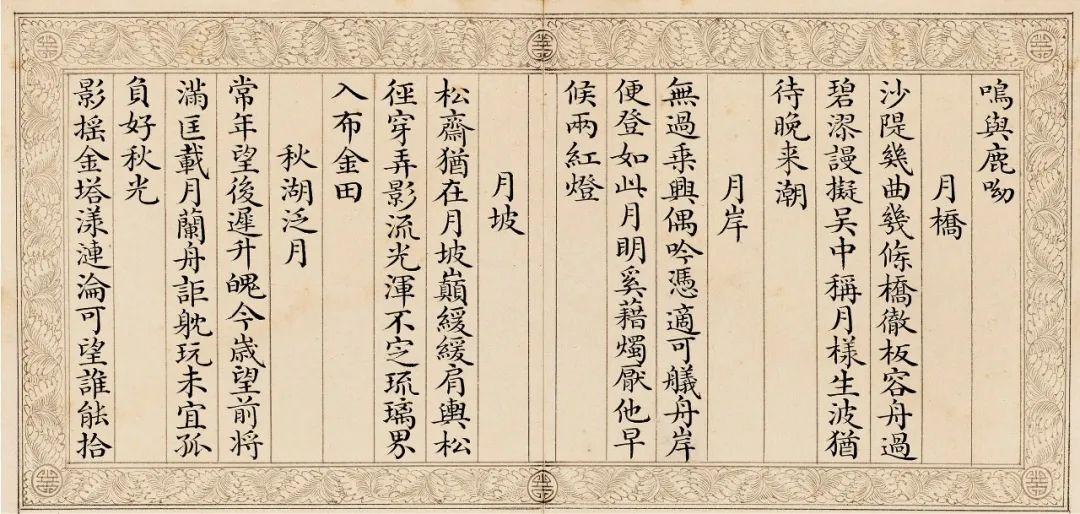 鳴與鹿呦
月橋
沙隄幾曲幾條橋徹板容舟過
碧漻謾擬吴中稱月様生波猶
待晚来潮
月岸
無過乗興偶吟憑適可艤舟岸
便登如此月明奚藉燭厭他早
候兩紅燈
月坡
松齋猶在月坡巔緩緩肩輿松
徑穿弄影流光渾不定琉璃界
入布金田
秋湖泛月
常年望後遲升魄今歲望前将
滿匡載月蘭舟詎躭玩未宜孤
負好秋光
影摇金塔漾漣淪可望誰能拾